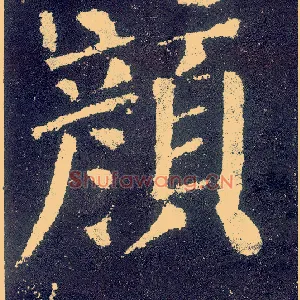 顔
Shufawang.CN